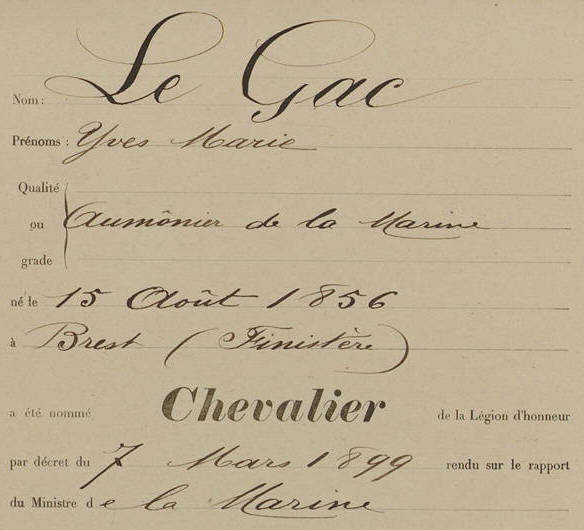 Nom: Le Gac
Prénoms: Yves Marie
Qualité
ou Aumônier de la Marine
grade
né le 15 Août 1856
à Brest (Finistère)
a été nommé Chevalier de la Légion d'honneur
par décret du 7 Mars 1899 rendu sur le rapport
du Ministre de la Marine